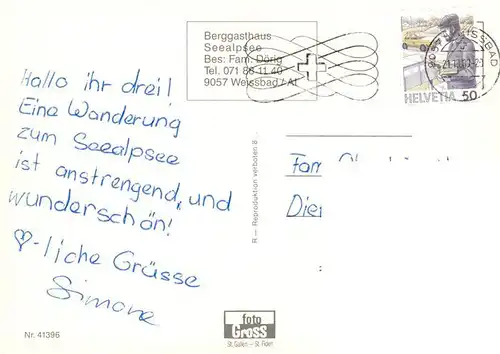 Berggasthaus
Seealpsee
Bes: Fam. Dörig
Tel. 071 88 11 40
9057 Weissbad / AI
HELVETIA 50
Hallo ihr drei!
Eine Wanderung
zum Seealpsee
ist anstrengend, und
wunderschön!
♡-liche Grüsse
Simone
R — Reproduktion verboten 8
foto
Gross
St. Gallen — St. Fiden
Nr. 41396